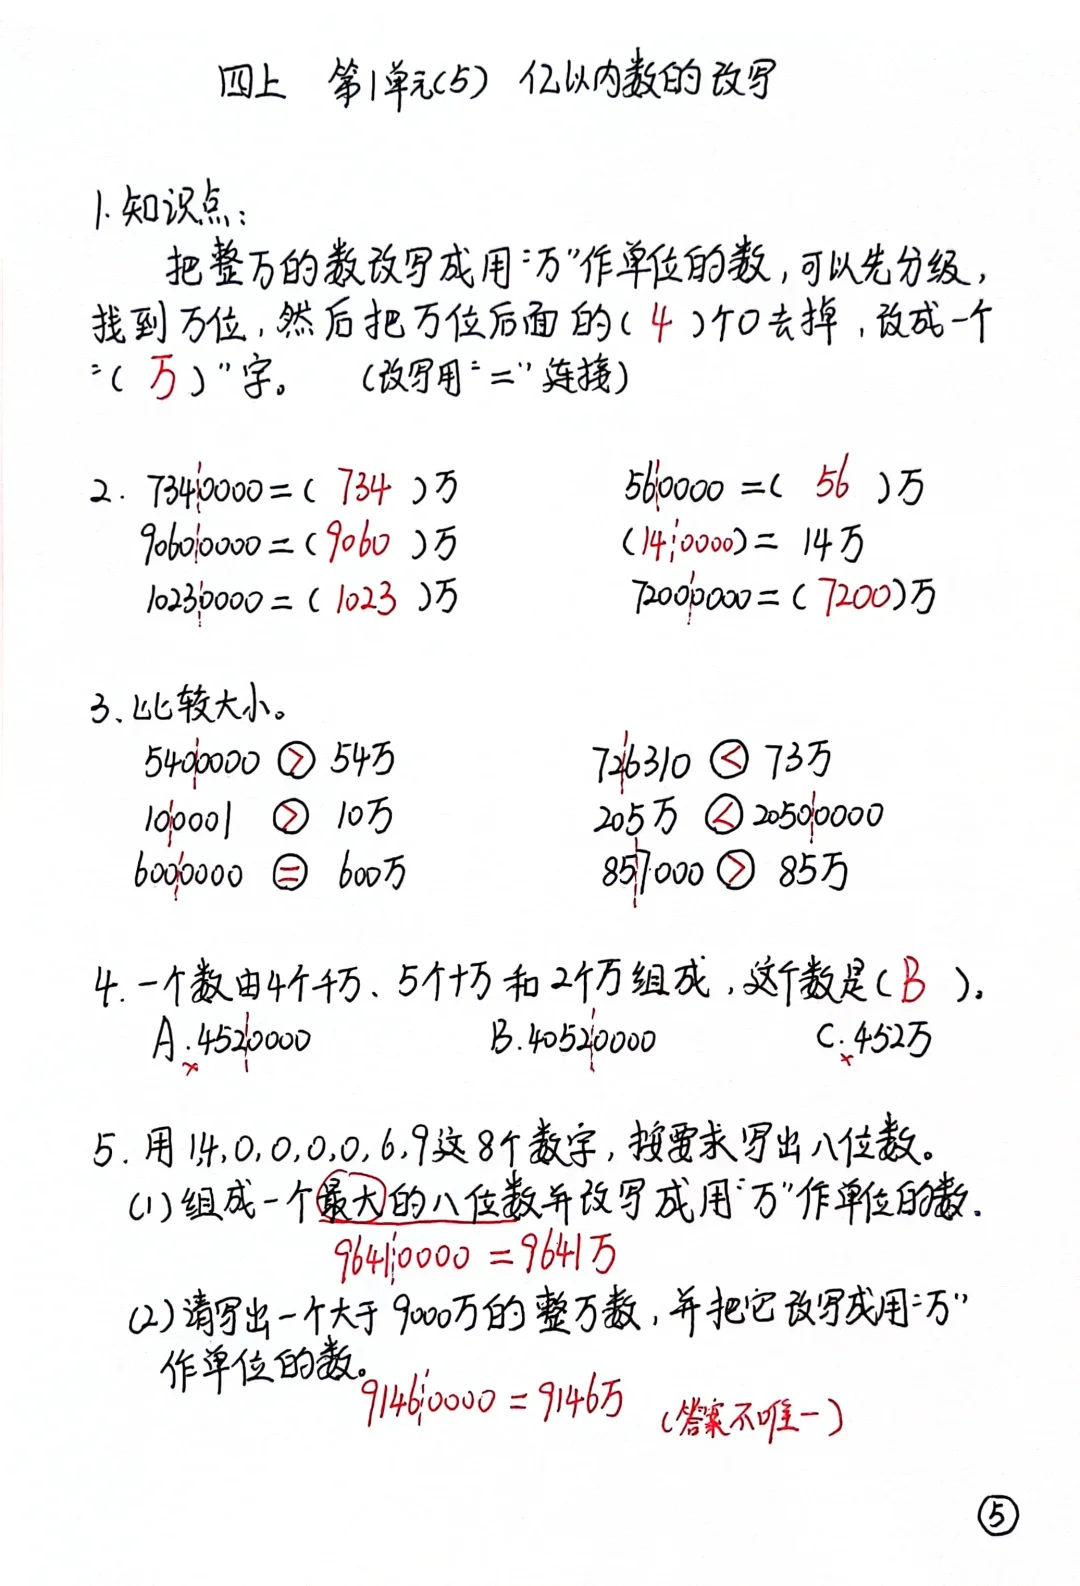 四上 第1单元(5) 亿以内数的改写
1.知识点:
把整万的数改写成用“万”作单位的数,可以先分级,
找到万位,然后把万位后面的(4)个0去掉,改成一个
“(万)”字。 (改写用“=”连接)
2. 7340000=(734)万 560000=(56)万
90600000=(9060)万 (140000)=14万
10230000=(1023)万 72000000=(7200)万
3、比较大小。
5400000>54万 726310<73万
100001>10万 205万<20500000
6000000=600万 857000>85万
4.一个数由4个千万、5个十万和2个万组成,这个数是(B)。
A.4520000 B.40520000 C.452万
5.用1,4,0,0,0,0,6,9这8个数字,按要求写出八位数。
(1)组成一个最大的八位数并改写成用“万”作单位的数.
96410000=9641万
(2)请写出一个大于9000万的整万数,并把它改写成用“万”
作单位的数。
91460000=9146万 (答案不唯一)
5